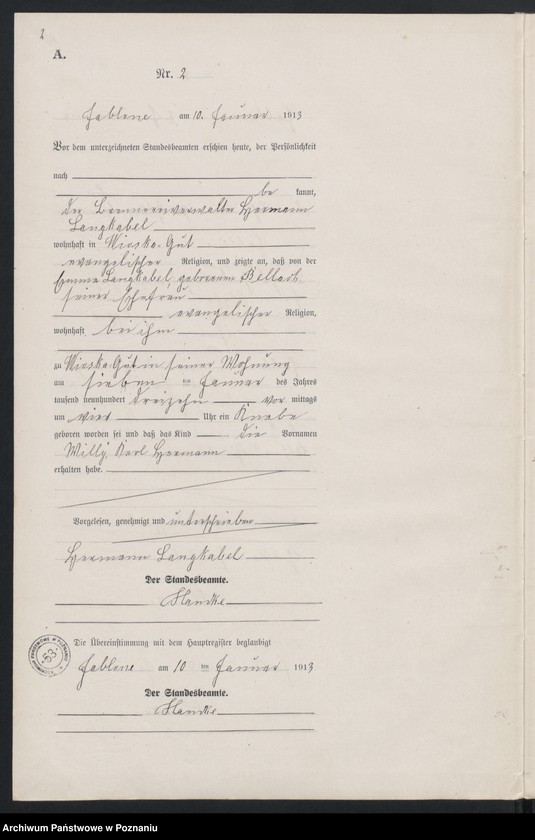 2
A.
Nr. 2
Jablone am 10. Januar 1913
Vor dem unterzeichneten Standesbeamten erschien heute, der Persönlichkeit
nach
be kannt,
der Brennereiverwalter Hermann
Langkabel
wohnhaft in Wioska-Gut
evangelischer Religion, und zeigte an, daß von der
Emma Langkabel, geborenen
seiner Ehefrau
evangelischer Religion,
wohnhaft bei ihm
zu Wioska-Gut in seiner Wohnung
am sieben ten Januar des Jahres
tausend neunhundert dreizehn vor mittags
um vier Uhr ein Knabe
geboren worden sei und daß das Kind die Vornamen
Willy Karl Hermann
erhalten habe.
Vorgelesen, genehmigt und unterschrieben
Hermann Langkabel
Der Standesbeamte.
Die Übereinstimmung mit dem Hauptregister beglaubigt
Jablone am 10 ten Januar 1913
Der Standesbeamte.
53
Archiwum Państwowe w Poznaniu